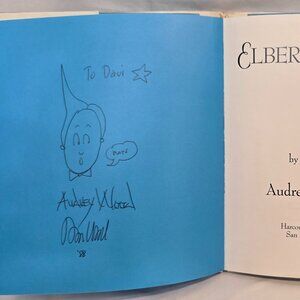 To Dani
Audrey Wood
Don Wood
'88
ELBER
by
Audre
Harcou
San